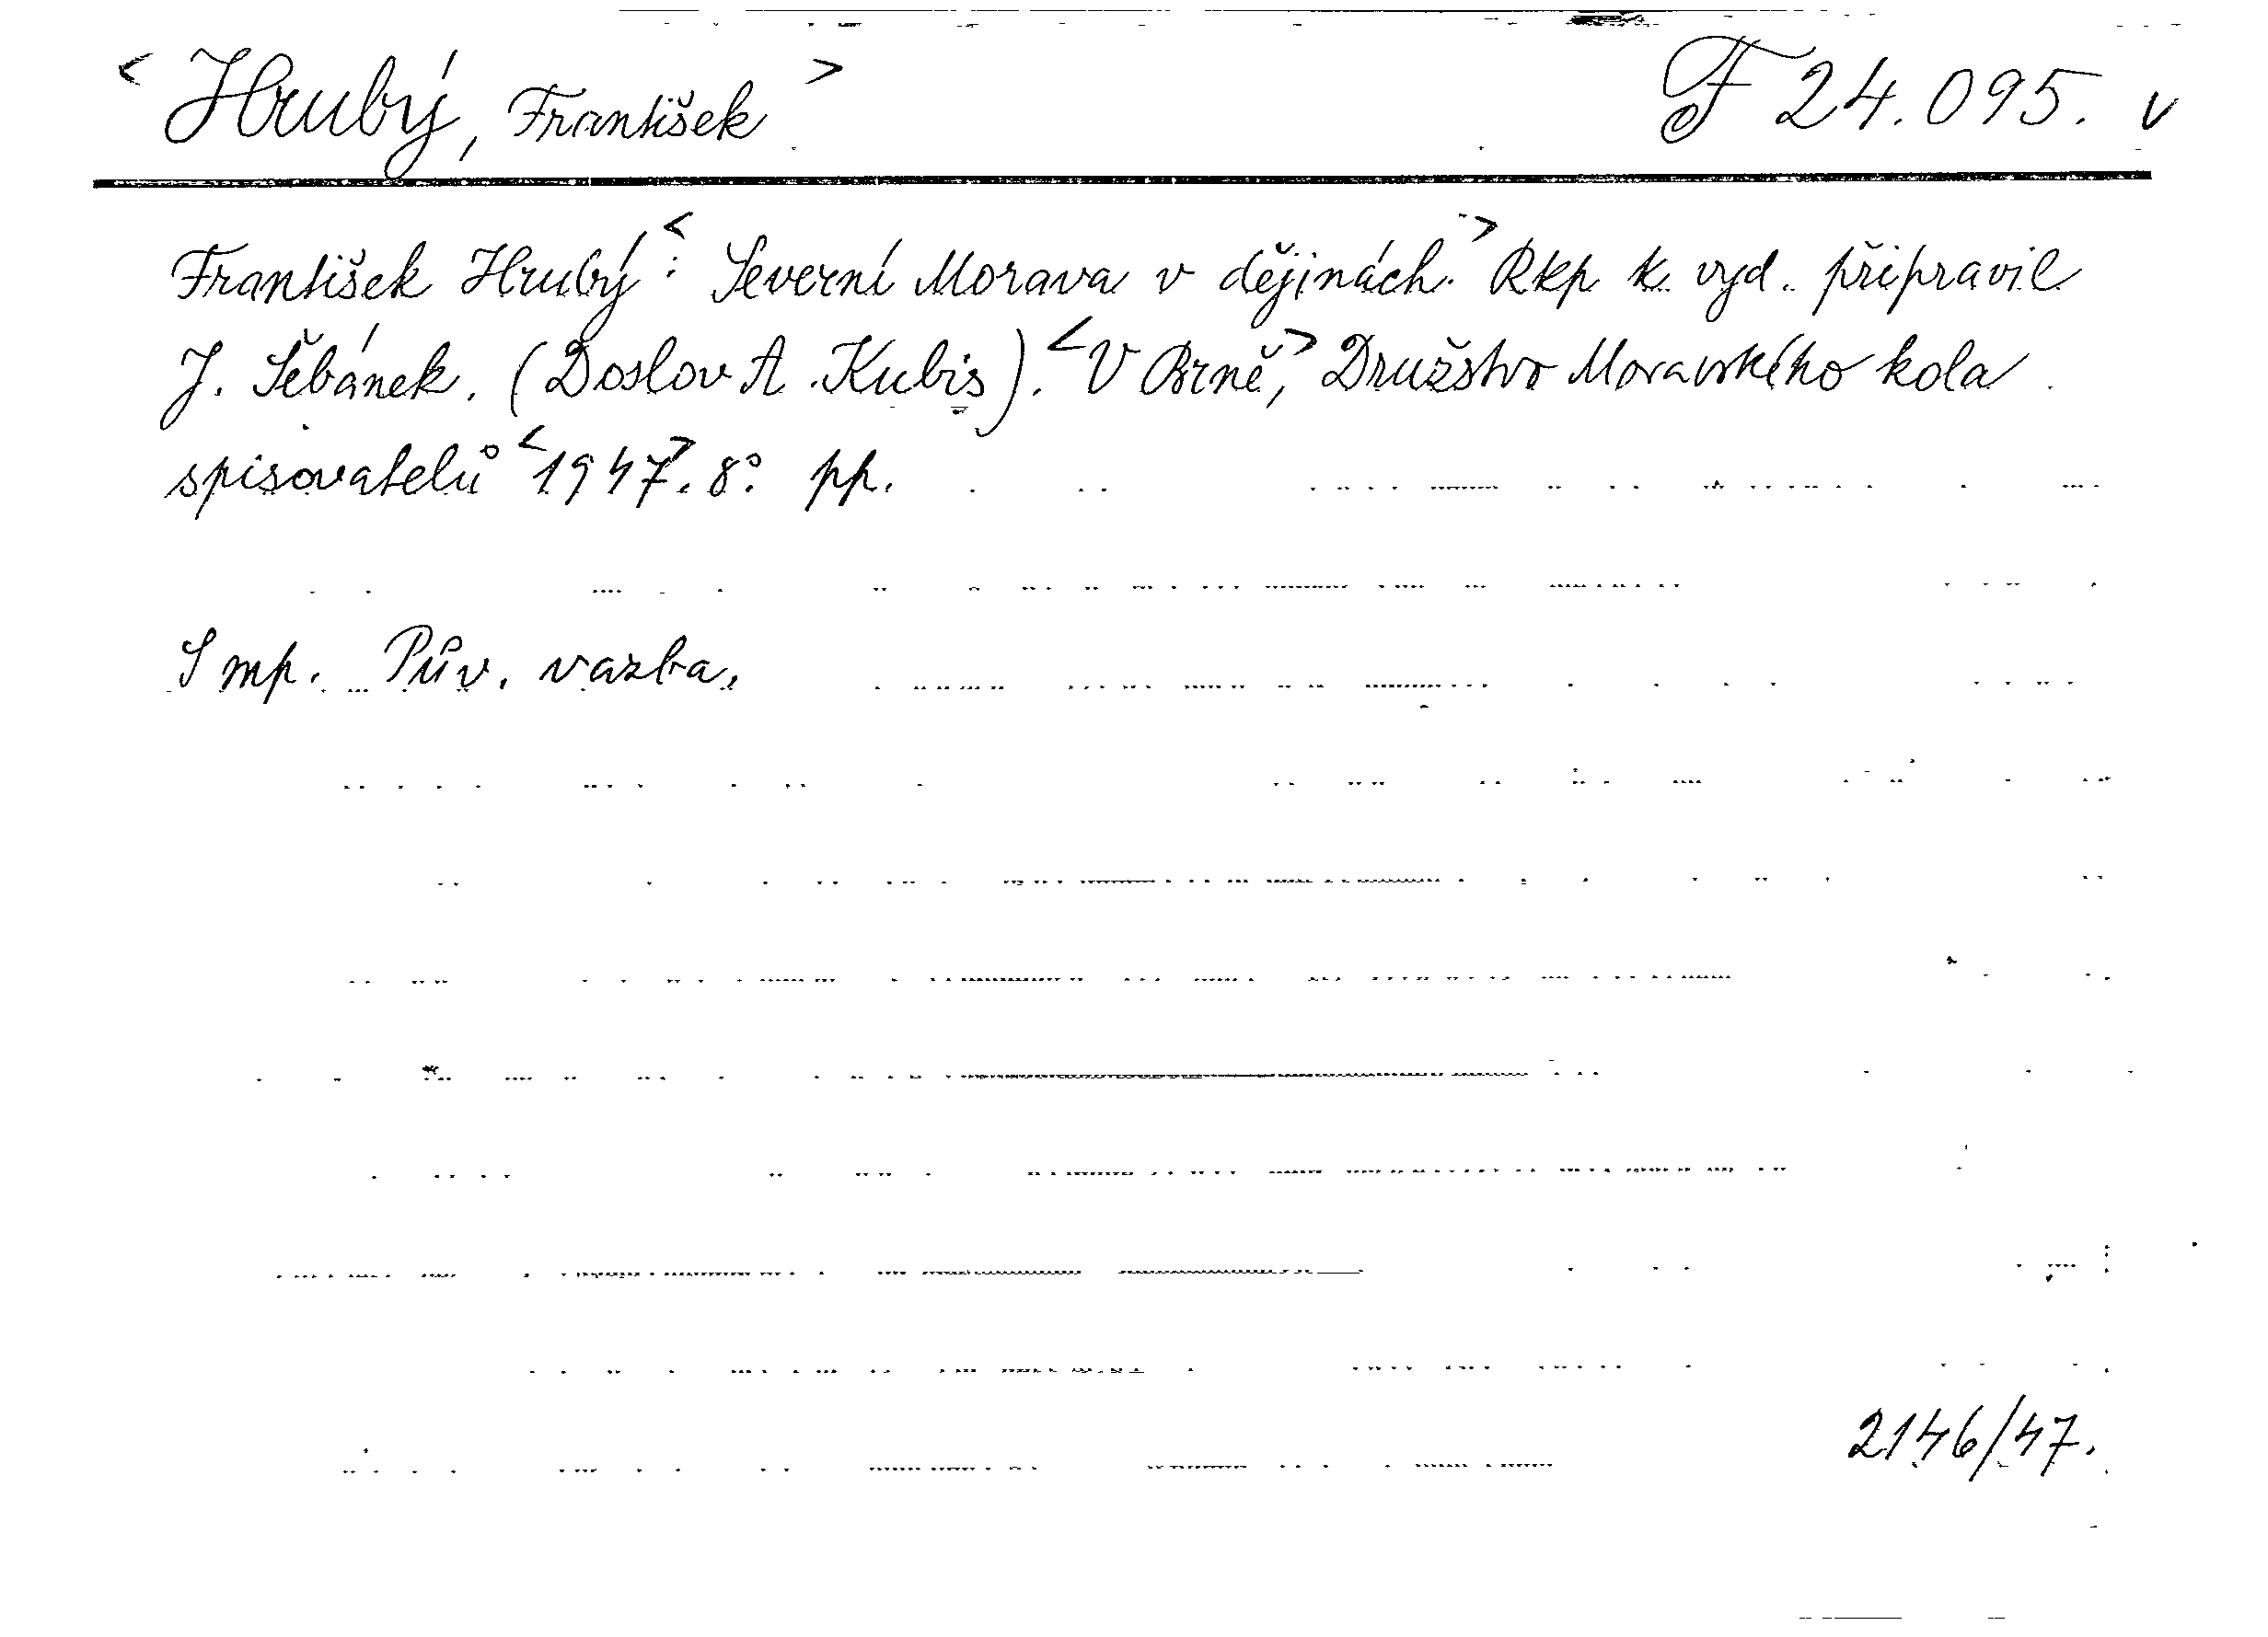 < Hrubý, František > F 24.095. v
František Hrubý: < Severní Morava v dějinách. > Rkp k vyd. připravil
J. Šebánek. (Doslov A. Kubis). < V Brně, > Družstvo Moravského kola
spisovatelů < 1947 >. 8°. pp.
Imp. Pův. vazba.
2146/47.